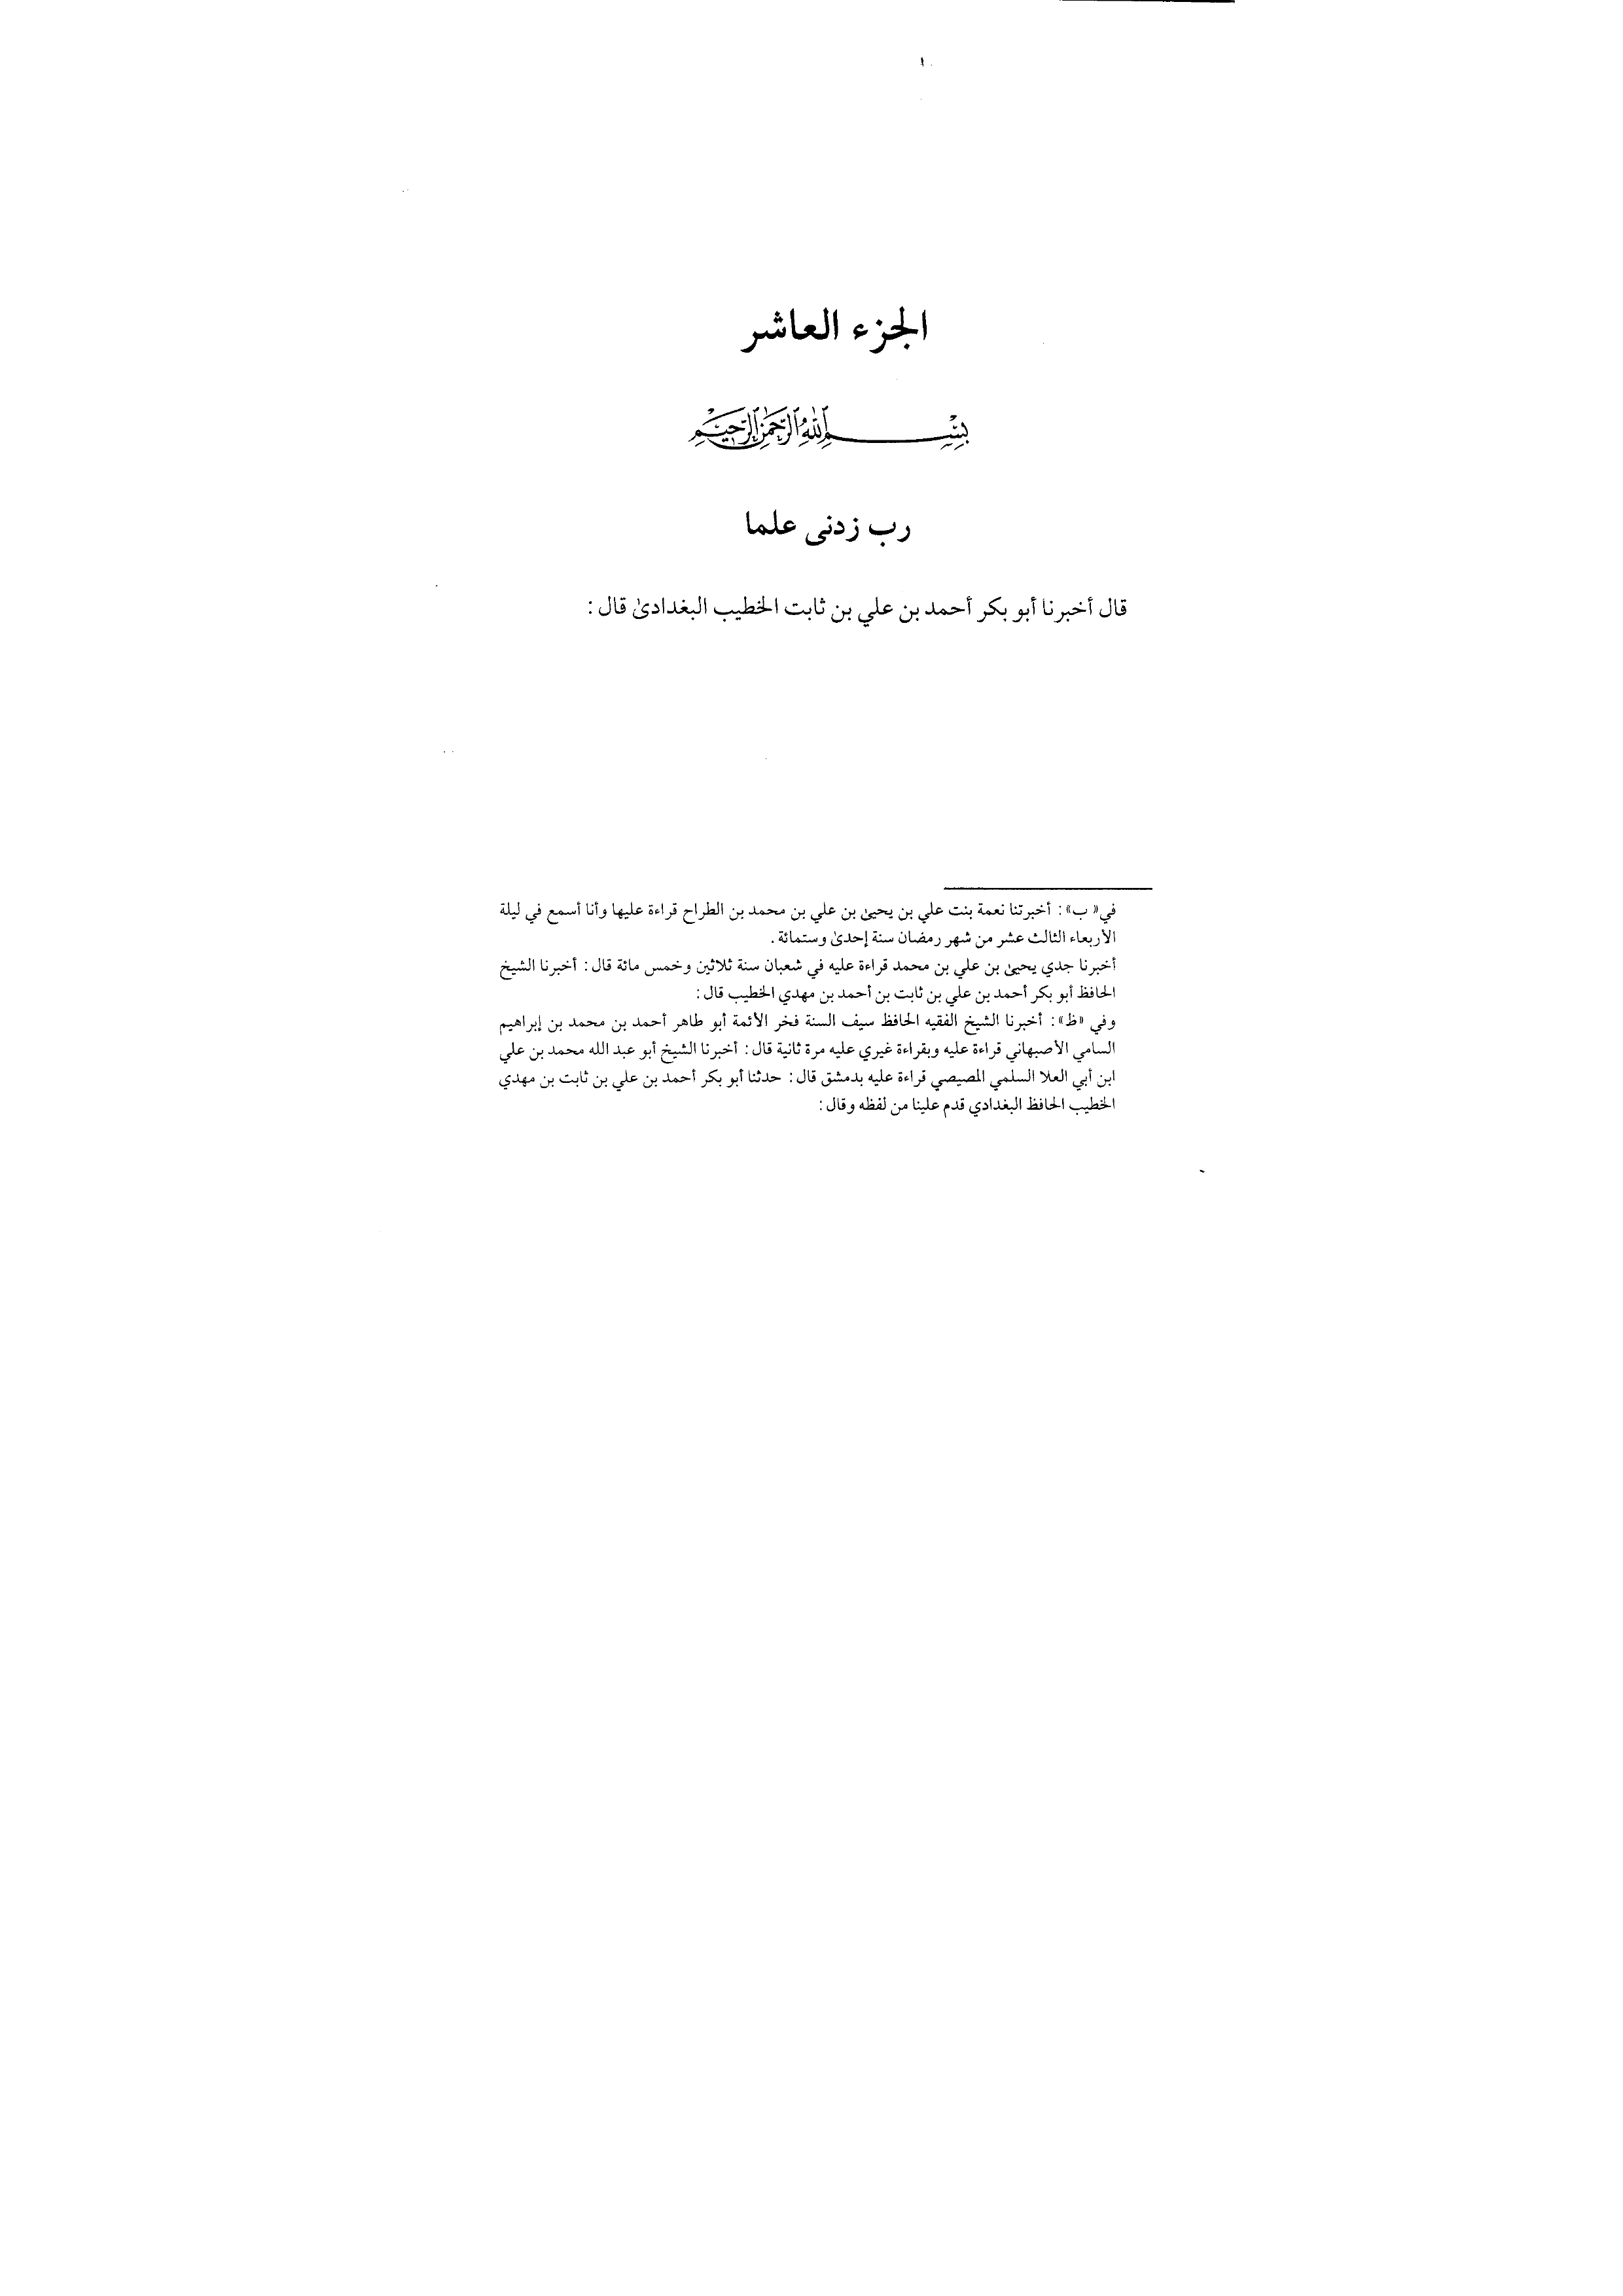 الجزء العاشر
بِسْمِ اللَّهِ الرَّحْمَٰنِ الرَّحِيمِ
رب زدنى علما
قال أخبرنا أبو بكر أحمد بن علي بن ثابت الخطيب البغدادىٰ قال :
في« ب» : أخبرتنا نعمة بنت علي بن يحيىٰ بن علي بن محمد بن الطراح قراءة عليها وأنا أسمع في ليلة
الأربعاء الثالث عشر من شهر رمضان سنة إحدىٰ وستمائة .
أخبرنا جدي يحيىٰ بن علي بن محمد قراءة عليه في شعبان سنة ثلاثين وخمس مائة قال : أخبرنا الشيخ
الحافظ أبو بكر أحمد بن علي بن ثابت بن أحمد بن مهدي الخطيب قال :
وفي «ظ» : أخبرنا الشيخ الفقيه الحافظ سيف السنة فخر الأئمة أبو طاهر أحمد بن محمد بن إبراهيم
السامي الأصبهاني قراءة عليه وبقراءة غيري عليه مرة ثانية قال : أخبرنا الشيخ أبو عبد الله محمد بن علي
ابن أبي العلا السلمي المصيصي قراءة عليه بدمشق قال : حدثنا أبو بكر أحمد بن علي بن ثابت بن مهدي
الخطيب الحافظ البغدادي قدم علينا من لفظه وقال :